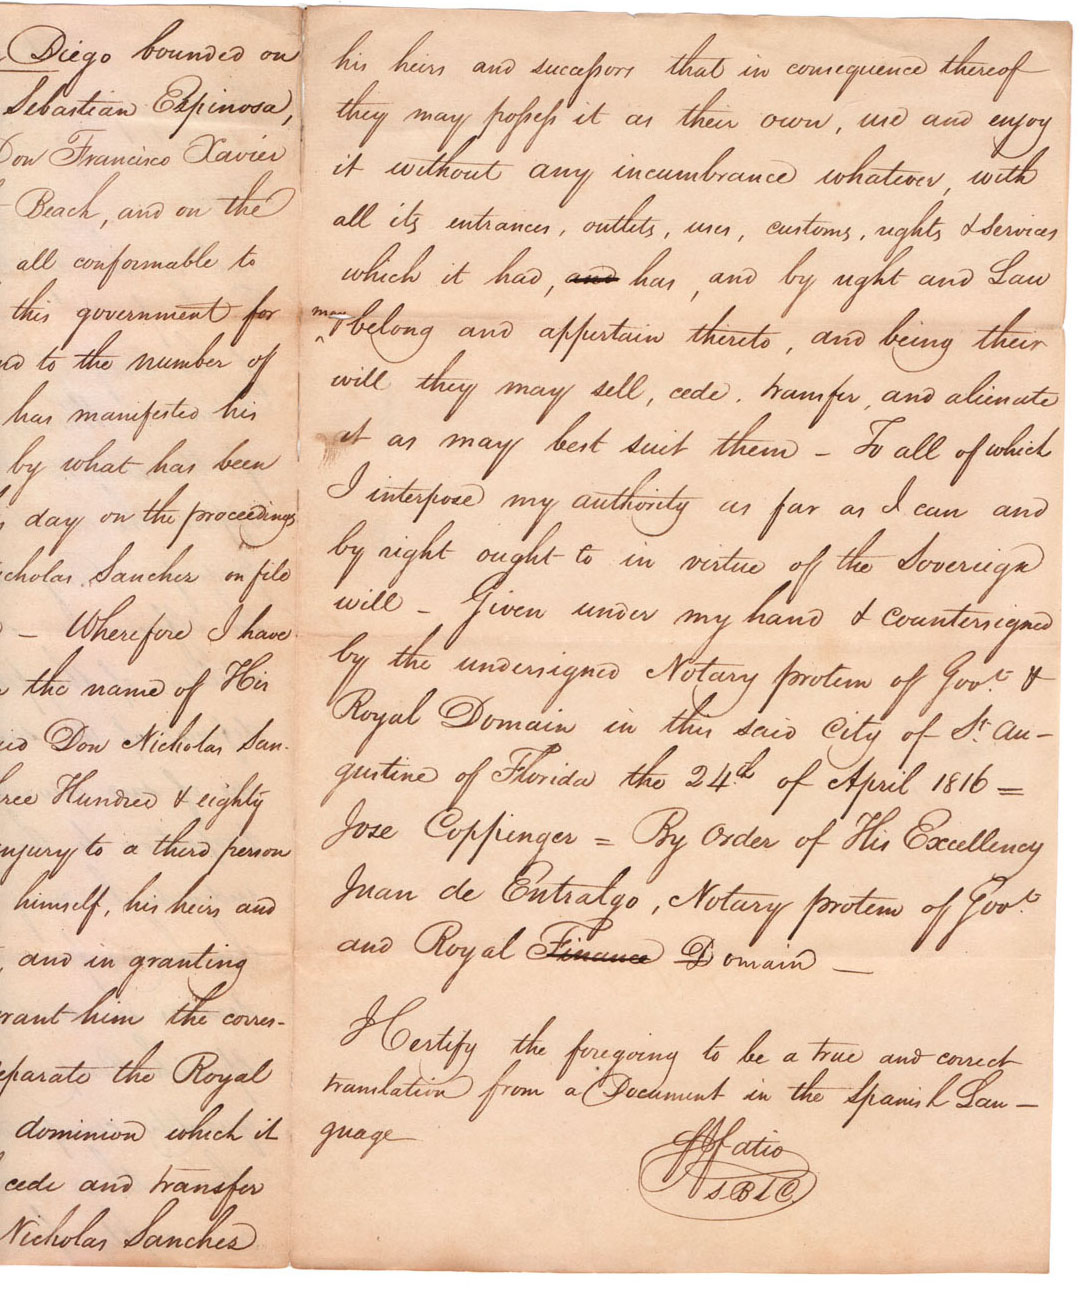 Diego bounded on
Sebastian Espinosa,
Don Francisco Xavier
Beach, and on the
all conformable to
this government for
nd to the number of
has manifested his
by what has been
day on the proceedings
icholas Sanchez on file
– Wherefore I have
the name of His
aid Don Nicholas San-
hree Hundred & eighty
injury to a third person
himself, his heirs and
, and in granting
rant him the corres-
eparate the Royal
dominion which it
cede and transfer
Nicholas Sanchez
his heirs and successors that in consequence thereof
they may possess it as their own, use and enjoy
it without any incumbrance whatever, with
all its entrances, outlets, uses, customs, rights & services
which it had, and has, and by right and Law
may belong and appertain thereto, and being their
will they may sell, cede, transfer, and alienate
it as may best suit them – To all of which
I interpose my authority as far as I can and
by right ought to in virtue of the Sovereign
will – Given under my hand & countersigned
by the undersigned Notary protem of Govt. &
Royal Domain in this said City of St. Au-
gustine of Florida the 24th of April 1816 =
Jose Coppinger = By Order of His Excellency
Juan de Entralgo, Notary protem of Govt.
and Royal Finance Domain –
I Certify the foregoing to be a true and correct
translation from a Document in the Spanish Lan-
guage
Fatio
S B L C.